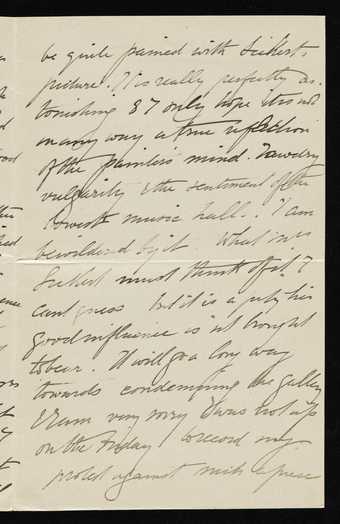 be quite pained with Sickert's
picture. It is really perfectly as-
tonishing & I only hope it is not
in any way a true reflection
of the painter's mind. Tawdry
vulgarity & the sentiment of the
lowest music hall. I am
bewildered by it. What Mrs
Sickert must think of it I
cant guess but it is a pity his
good influence is not brought
to bear. It will go a long way
towards condemning the gallery
& I am very sorry I was not up
on the Friday to record my
protest against such a piece